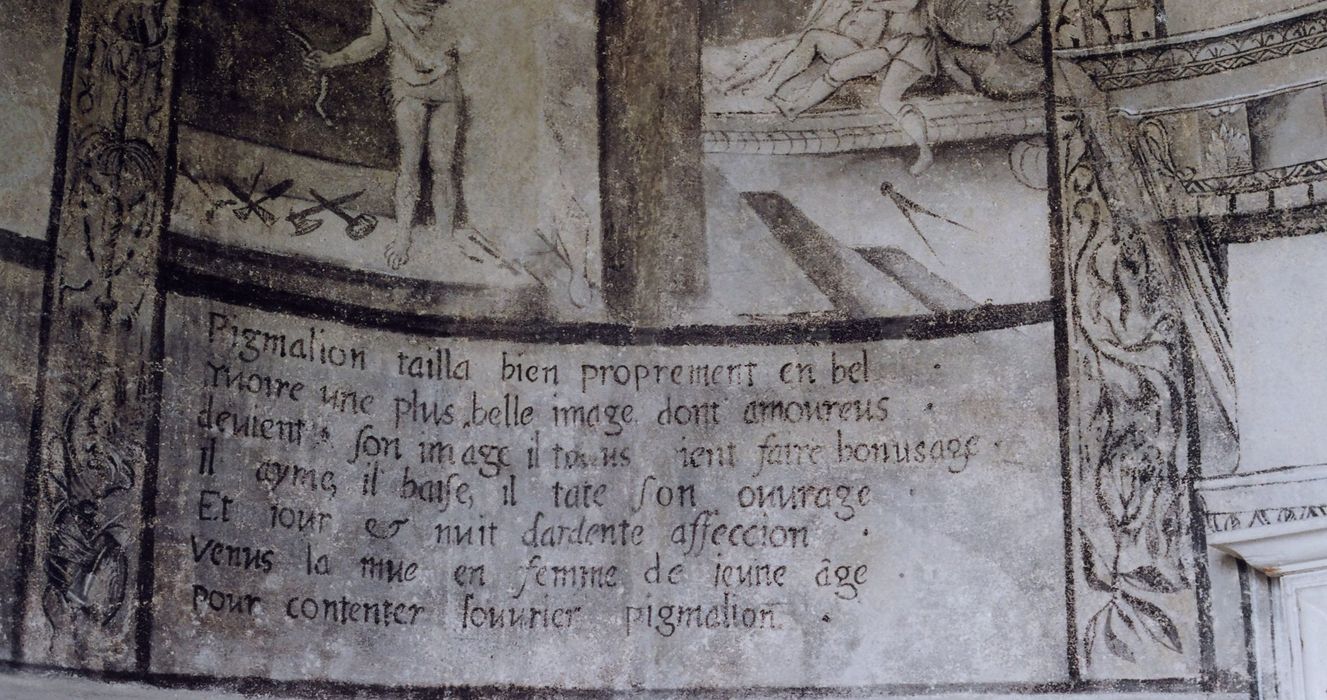 Pigmalion tailla bien proprement en bel
yuoire une plus belle image dont amoureus
deuient, son image il vient faire bonusage
il ayme, il baise, il tate son ouurage
Et iour & nuit dardente affeccion
Venus la mue en femme de ieune âge
pour contenter souurier pigmalion